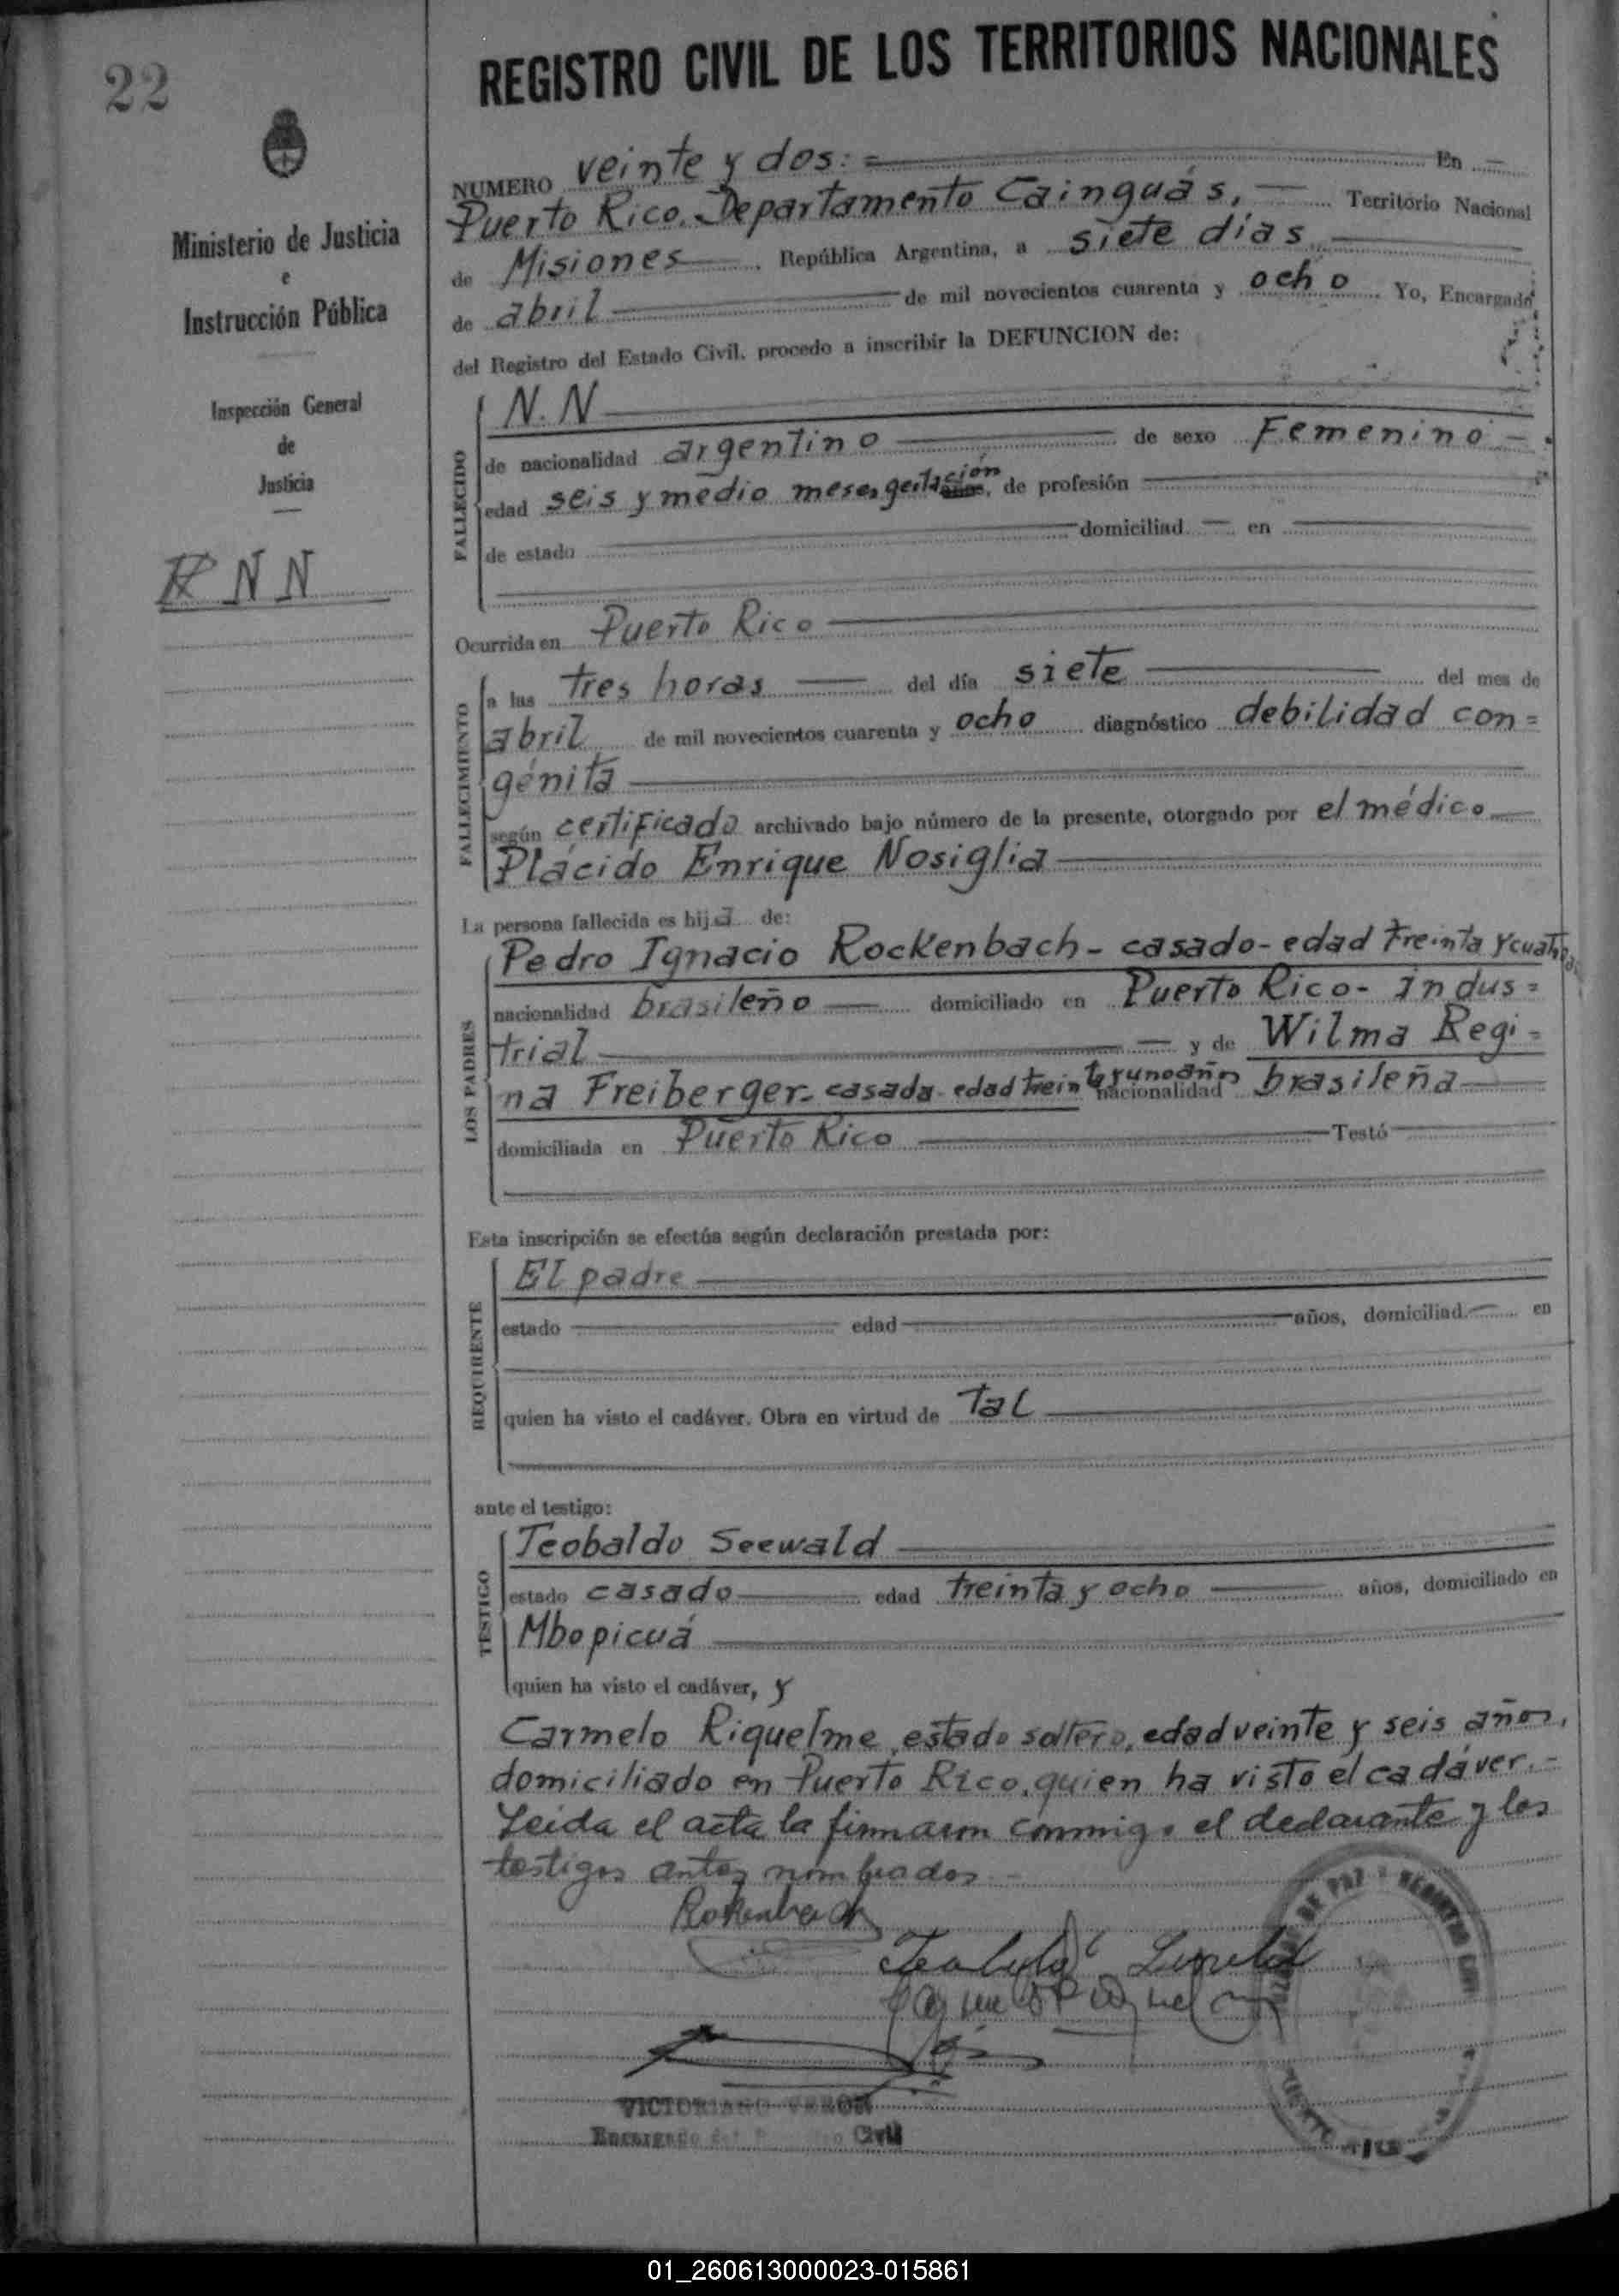 22
REGISTRO CIVIL DE LOS TERRITORIOS NACIONALES
Ministerio de Justicia
e
Instrucción Pública
Inspección General
de
Justicia
N N
NUMERO veinte y dos: = En
Puerto Rico. Departamento Cainguás, Territorio Nacional
de Misiones República Argentina, a siete días
de abril de mil novecientos cuarenta y ocho Yo, Encargado
del Registro del Estado Civil, procedo a inscribir la DEFUNCION de:
FALLECIDO
N. N
de nacionalidad argentino de sexo Femenino
edad seis y medio meses gestación, de profesión
de estado domiciliad en
Ocurrida en Puerto Rico
FALLECIMIENTO
a las tres horas del día siete del mes de
abril de mil novecientos cuarenta y ocho diagnóstico debilidad con=
génita
según certificado archivado bajo número de la presente, otorgado por el médico
Plácido Enrique Nosiglia
La persona fallecida es hija de:
LOS PADRES
Pedro Ignacio Rockenbach - casado - edad treinta y cuatro
nacionalidad brasileño domiciliado en Puerto Rico - indus=
trial y de Wilma Regi=
na Freiberger - casada - edad treinta y uno años nacionalidad brasileña
domiciliada en Puerto Rico Testó
Esta inscripción se efectúa según declaración prestada por:
REQUIRENTE
El padre
estado edad años, domiciliad en
quien ha visto el cadáver. Obra en virtud de tal
ante el testigo:
TESTIGO
Teobaldo Seewald
estado casado edad treinta y ocho años, domiciliado en
Mbopicuá
quien ha visto el cadáver, y
Carmelo Riquelme, estado soltero, edad veinte y seis años,
domiciliado en Puerto Rico, quien ha visto el cadáver. -
Leida el acta la firmaron conmigo el declarante y los
testigos antes nombrados -
Rokenbach
VICTORIANO VERON
Encargado del Civil
01_260613000023-015861